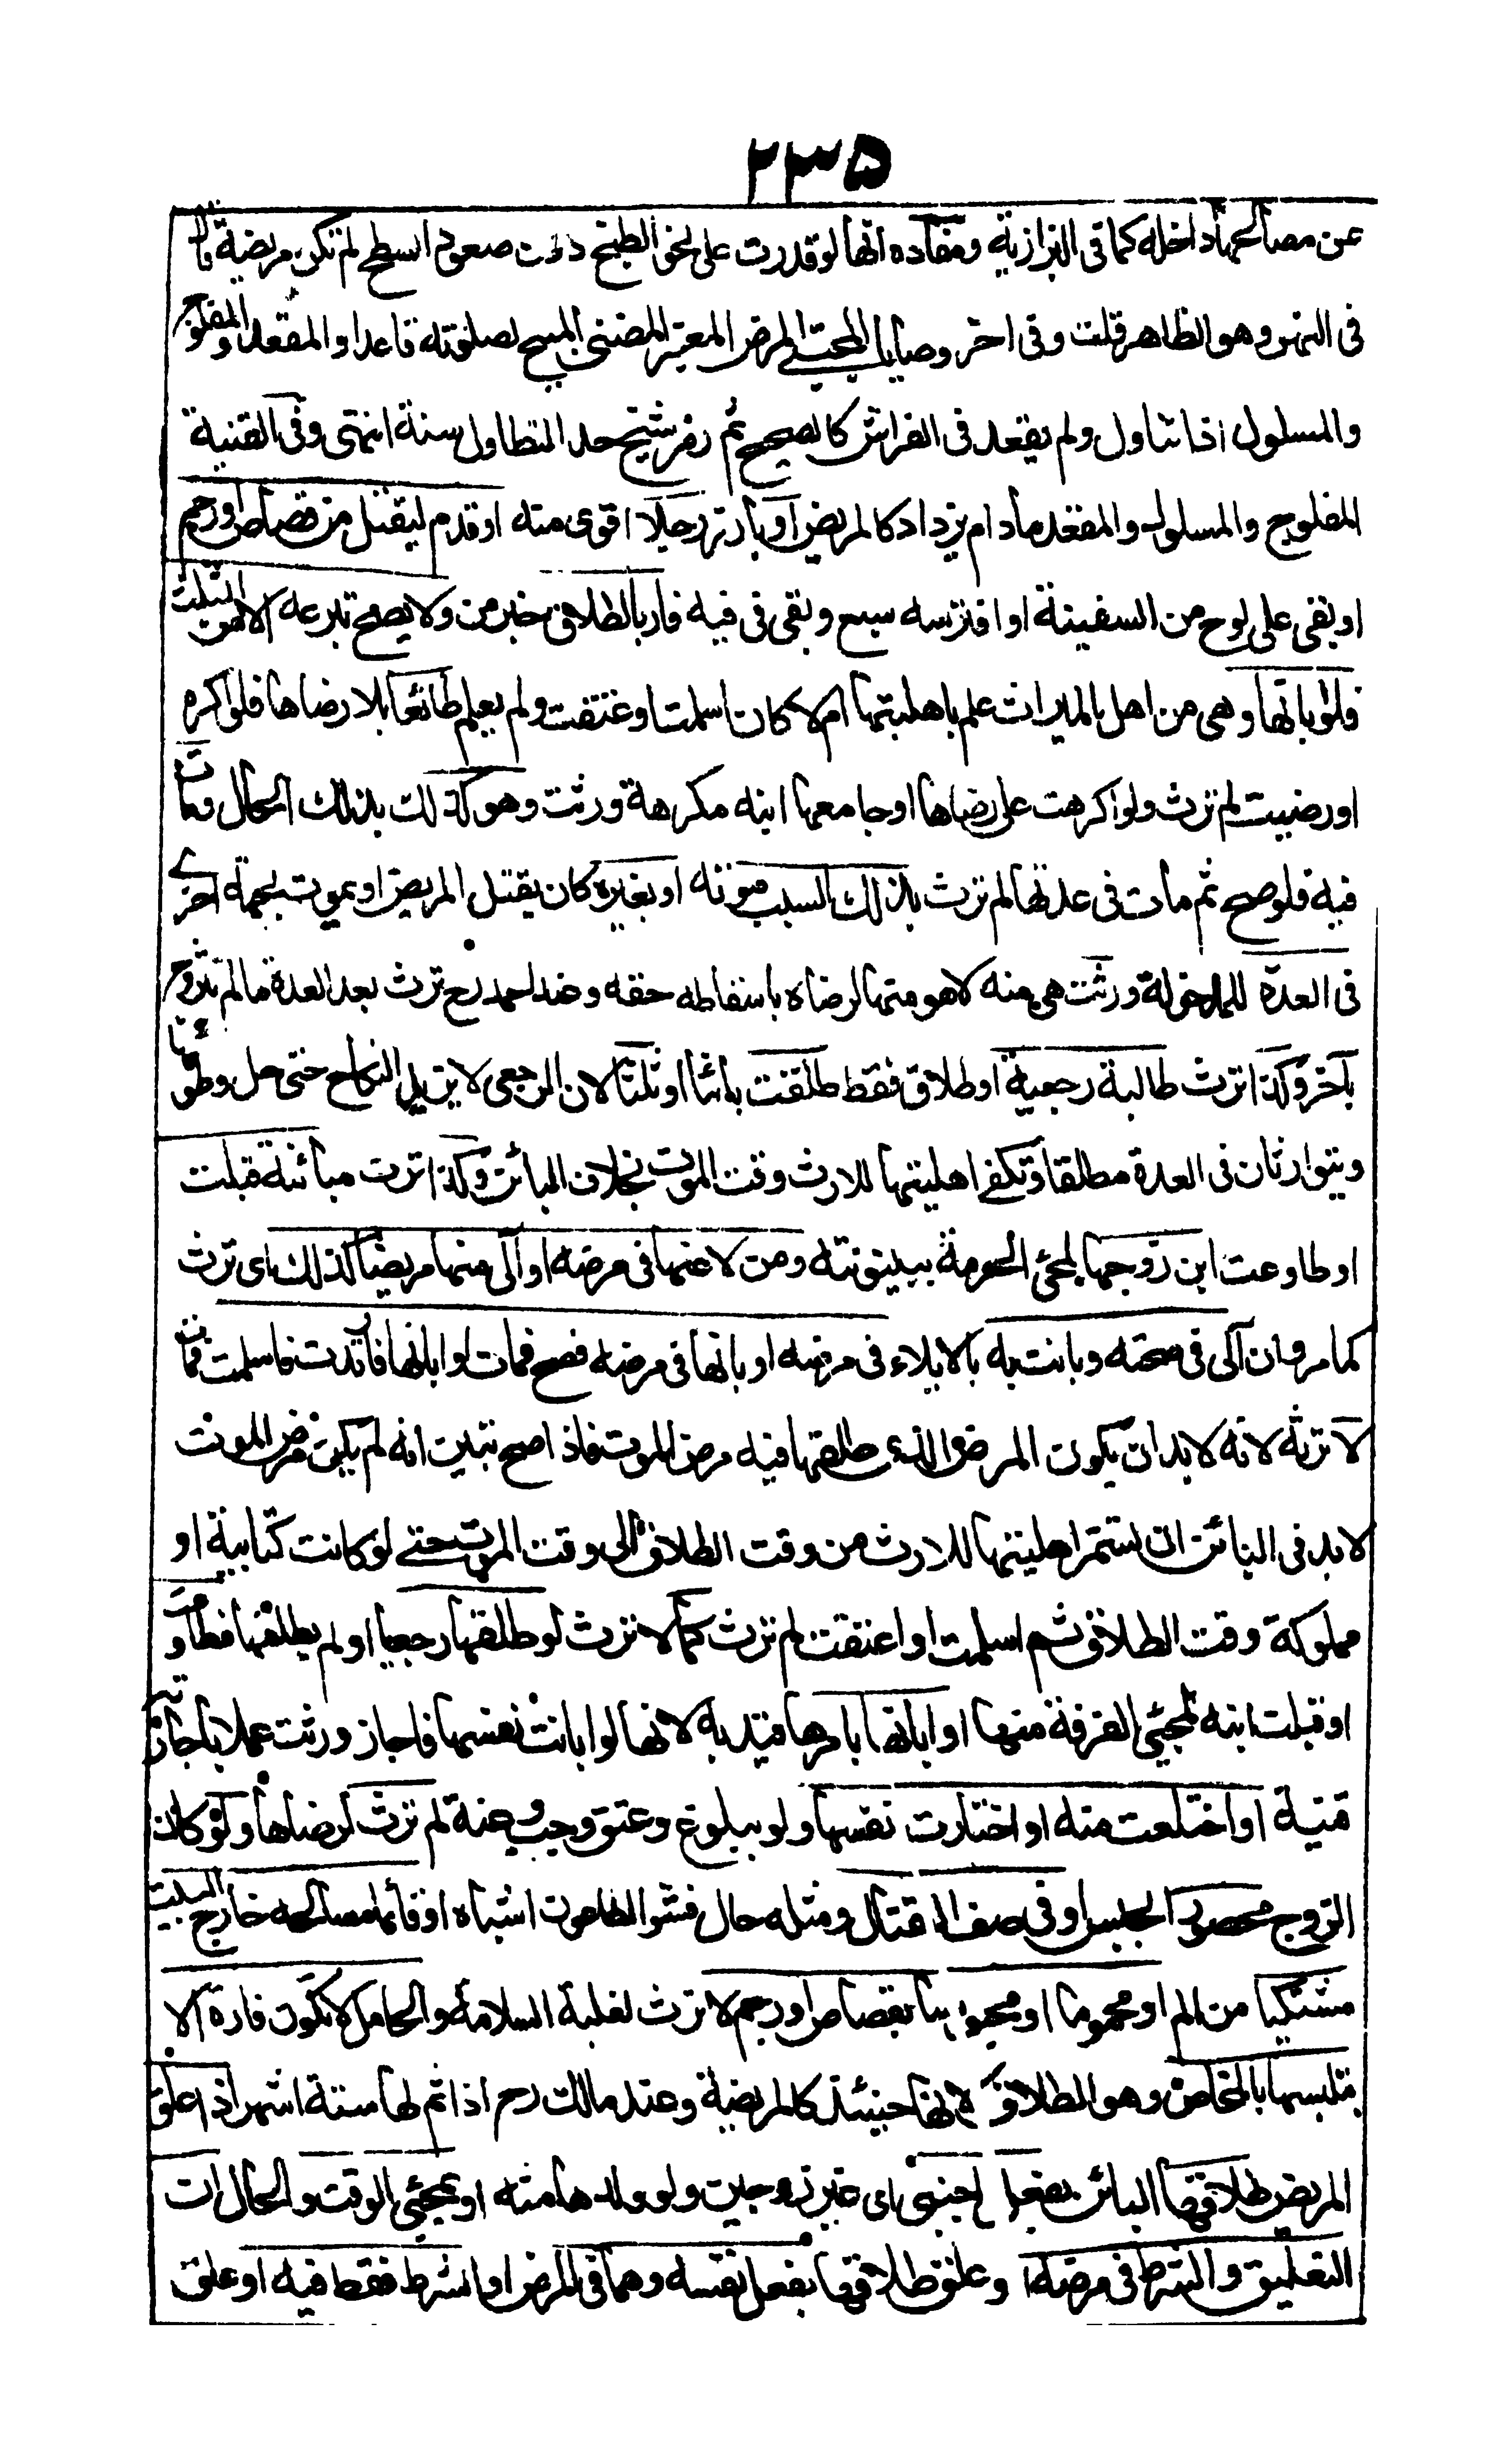 ٢٣٥
عن مصالحها داخله كما فى البزازية ومفاده انها لو قدرت على نحو الطبخ دون صعود السطح لم تكن مريضة قال
فى النهر وهو الظاهر قلت وفى اخر وصايا المجتبى المرض المعتبر المضنى المبيح لصلوته قاعدا والمقعد والمفلوج
والمسلول اذا تطاول ولم يقعد فى الفراش كالصحيح ثم رمز شيخ حد التطاول سنة انتهى وفى القنية
المفلوج والمسلول والمقعد مادام يزداد كالمريض او بارز رجلا اقوى منه او قدم ليقتل من قصاص او رجم
او بقى على لوح من السفينة او افترسه سبع وبقى فى فيه فار بالطلاق خبر من ولا يصح تبرعه الا من الثلث
فلو ابانها وهى من اهل الميراث علم باهليتها ام لا كان اسلمت او عتقت ولم يعلم طائعا بلا رضاها فلو اكره
او رضيت لم ترث ولو اكرهت على رضاها او جامعها ابنه مكرهة ورثت وهو كذلك بذلك الحال ومات
فيه فلو صح ثم مات فى عدتها لم ترث بذلك السبب موته او بغيره كان يقتل المريض او يموت بجهة اخرى
فى العدة للمدخولة ورثت هى منه لا هو منها لرضاه باسقاطه حقه وعند احمد رح ترث بعد العدة ما لم تتزوج
بآخر وكذا ترث طالبة رجعية او طلاق فقط طلقت بائنا او ثلثا لان الرجعى لا يزيل النكاح حتى حل وطؤها
ويتوارثان فى العدة مطلقا وتكفى اهليتها للارث وقت الموت بخلاف البائن وكذا ترث مبائنة قبلت
او طاوعت ابن زوجها لمجئ الحرمة ببينونته ومن لاعنها فى مرضه او آلى منها مريضا كذلك اى ترث
كما مر وان آلى فى صحته وبانت به بالايلاء فى مرضه او ابانها فى مرضه فصح فمات او ابانها فارتدت فاسلمت فمات
لا ترثه لانه لا بد ان يكون المرض الذى طلقها فيه مرض الموت فاذا صح تبين انه لم يكن مرض الموت
لا بد فى البائن ان تستمر اهليتها للارث من وقت الطلاق الى وقت الموت حتى لو كانت كتابية او
مملوكة وقت الطلاق ثم اسلمت او اعتقت لم ترث كما لا ترث لو طلقها رجعيا او لم يطلقها فطاوعت
او قبلت ابنه لمجئ الفرقة منها او ابانها بامرها قيد به لانها لو ابانت نفسها فاجاز ورثت عملا باجازته
قنية او اختلعت منه او اختارت نفسها ولو ببلوغ وعتق وجب وعنة لم ترث لرضاها ولو كان
الزوج محصورا بحبس او فى صف القتال ومثله حال فشو الطاعون اشباه او قائما بمصالحه خارج البيت
مشتكيا من الم او محموما او محبوسا بقصاص او رجم لا ترث لغلبة السلامة والحامل لا تكون فارة الا
بتلبسها بالمخاض وهو الطلاق لانها حينئذ كالمريضة وعند مالك رح اذا تم لها ستة اشهر اذا علق
المريض طلاقها البائن بفعل اجنبى اى غير زوجين ولو ولدها منه او بمجئ الوقت والحال ان
التعليق والشرط فى مرضه او علق طلاقها بفعل نفسه وهما فى المرض او الشرط فقط فيه او علق